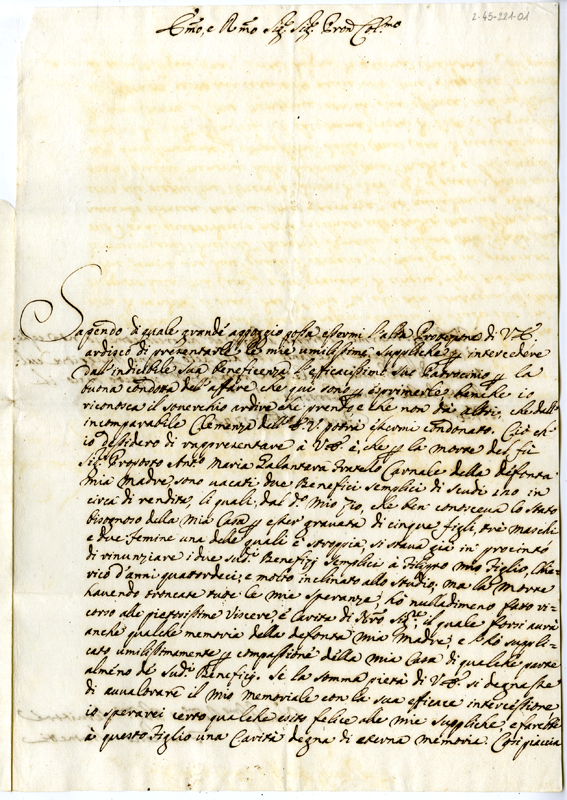 2-45-221-01
Em̃o, e Rm̃o Sig.r Sig.r Pron̄ Col.mo
Sapendo à quale grande appoggio possa essermi l'alta Protezione di V.E.
ardisco di presentarle le mie umilissime suppliche per intercedere
dall'indicibile sua beneficenza l'efficacissimo suo Patrocinio per la
buona condotta dell'affare che qui sono per esprimerle, benche io
riconosca il soverchio ardire che prendo e che non da altri, che dall'
incomparabile Clemenza dell'E.V. potria essermi condonato. Ciò ch'
io desidero di rappresentare à V.E. è, che per la morte del fù
Sig.r Proposto Ant.o Maria Galantara fratello Carnale della defonta
mia Madre, sono vacati due Benefici semplici di Scudi in
circa di rendita, li quali, dal d.o Mio Zio, che ben conosceva lo stato
bisognoso della mia Casa per esser gravata di cinque figli, trè maschi
e due femine una delle quali è stroppia, si stava già in procinto
di rinunziare i due sud.i Benefizj semplici à Filippo mio figlio, Chie-
rico d'anni quattordeci, e molto inclinato allo studio, ma la morte
havendo troncate tute le mie speranze, hò nulladimeno fatto ri-
corso alle pietosissime viscere, e carità di N̄ro Sig.re il quale forsi aurà
anche qualche memoria della defonta mia Madre, e l'hò suppli-
cato umilissimamente per compassione della mia Casa di qualche parte
almeno de' sud.i Beneficj. Se la somma pietà di V.E. si degnasse
di auvalorare il mio memoriale con la sua efficace intercessione
io sperarei certo qualche esito felice alle mie suppliche, e farebbe
à questo figlio una Carità degna di eterna memoria. Così piaccia